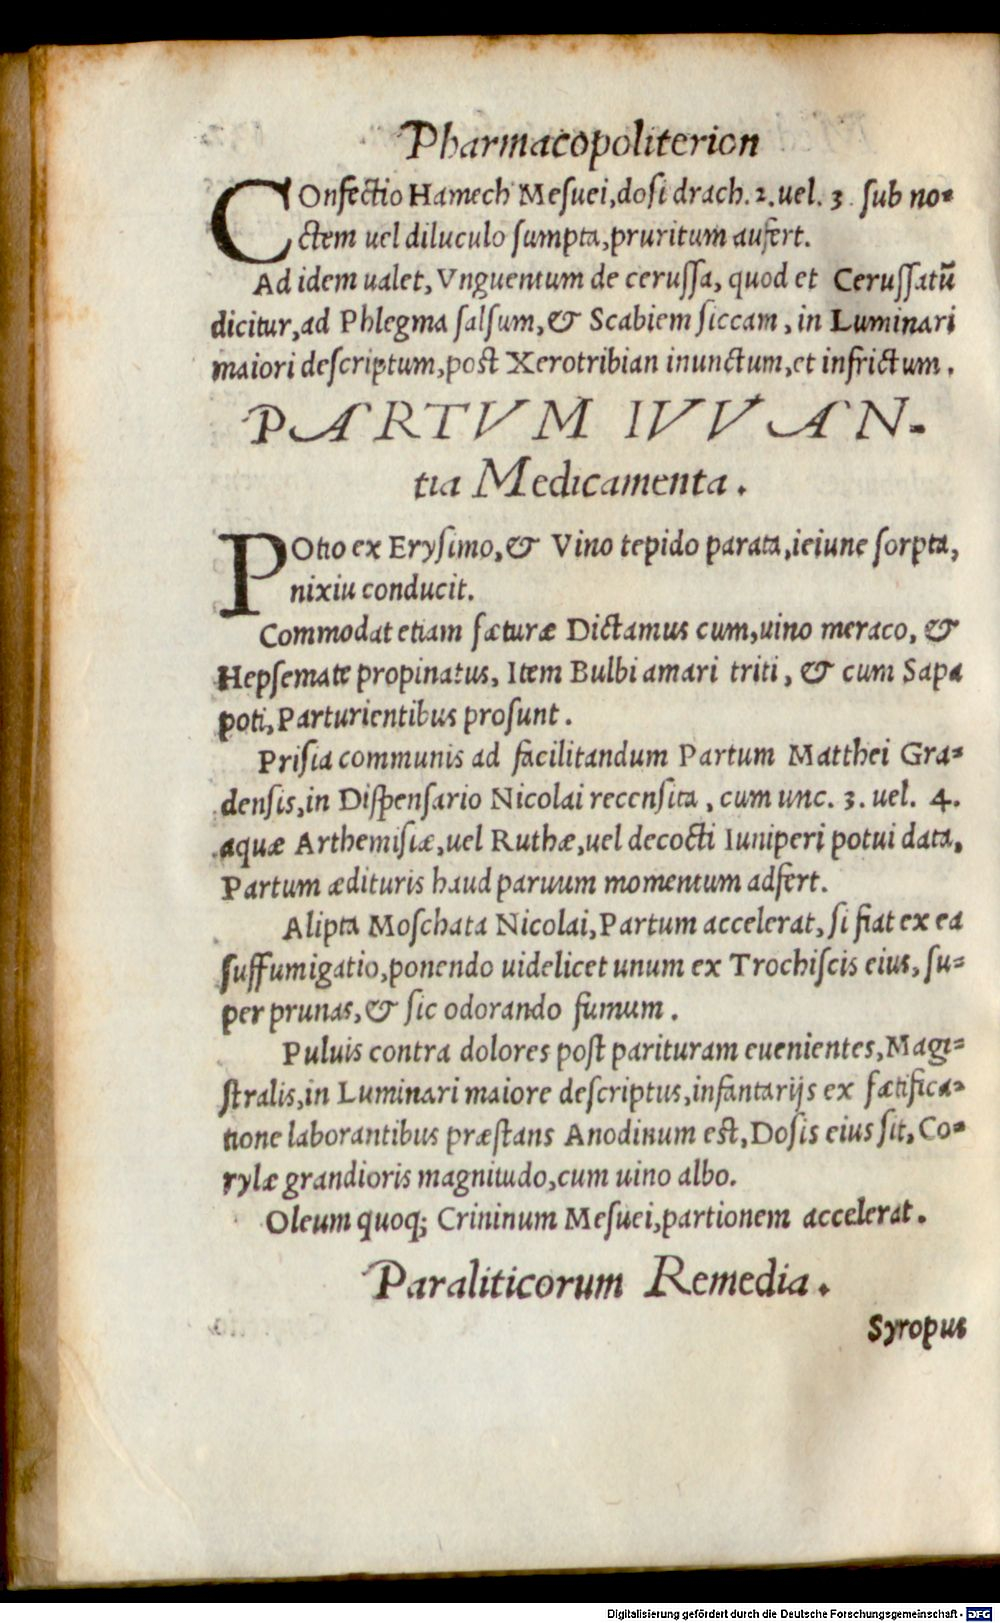 Pharmacopoliterion
COnfectio Hamech Mesuei, dosi drach. 2. uel. 3. sub no-
ctem uel diluculo sumpta, pruritum aufert.
Ad idem ualet, Vnguentum de cerussa, quod et Cerussatũ
dicitur, ad Phlegma salsum, & Scabiem siccam, in Luminari
maiori descriptum, post Xerotribian inunctum, et infrictum.
PARTVM IVVAN-
tia Medicamenta.
POtio ex Erysimo, & Vino tepido parata, ieiune sorpta,
nixiu conducit.
Commodat etiam fæturæ Dictamus cum, uino meraco, &
Hepsemate propinatus, Item Bulbi amari triti, & cum Sapa
poti, Parturientibus prosunt.
Prisia communis ad facilitandum Partum Matthei Gra-
densis, in Dispensario Nicolai recensita, cum unc. 3. uel. 4.
aquæ Arthemisiæ, uel Ruthæ, uel decocti Iuniperi potui data,
Partum ædituris haud paruum momentum adfert.
Alipta Moschata Nicolai, Partum accelerat, si fiat ex ea
suffumigatio, ponendo uidelicet unum ex Trochiscis eius, su-
per prunas, & sic odorando fumum.
Puluis contra dolores post parituram euenientes, Magi-
stralis, in Luminari maiore descriptus, infantarijs ex fætifica-
tione laborantibus præstans Anodinum est, Dosis eius sit, Co-
rylæ grandioris magnitudo, cum uino albo.
Oleum quoq; Crininum Mesuei, partionem accelerat.
Paraliticorum Remedia.
Syropus
Digitalisierung gefördert durch die Deutsche Forschungsgemeinschaft - DFG